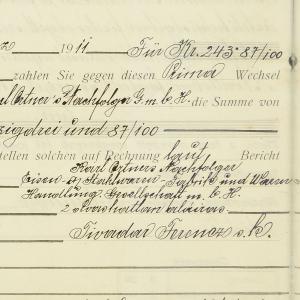 1911 Für Kr. 243·87/100
zahlen Sie gegen diesen Prima Wechsel
Ortner's Nachfolger G. m. b. H. die Summe von
zigdrei und 87/100
stellen solchen auf Rechnung laut Bericht
Karl Ortners Nachfolger
Eisen- & Stahlwaren-Fabrik und Waren
Handlung Gesellschaft m. b. H.
Tivadar Ferencz s. k.